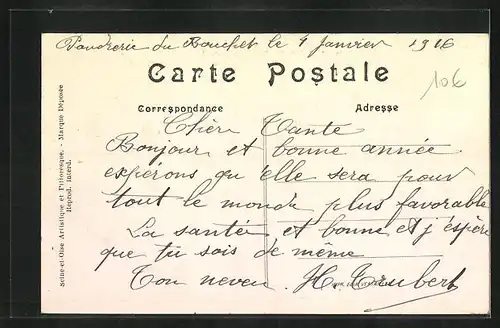 Poudrerie du Bouchet le 9 Janvier 1916
Carte Postale
10€
Correspondance
Adresse
Chère Tante
Bonjour et bonne année.
espérons qu'elle sera pour
tout le monde plus favorable
La santée et bonne et j'éspère
que tu sois de même
Ton neveu H. Trubert
Seine-et-Oise Artistique et Pittoresque. - Marque Déposée
Reprod. interd.